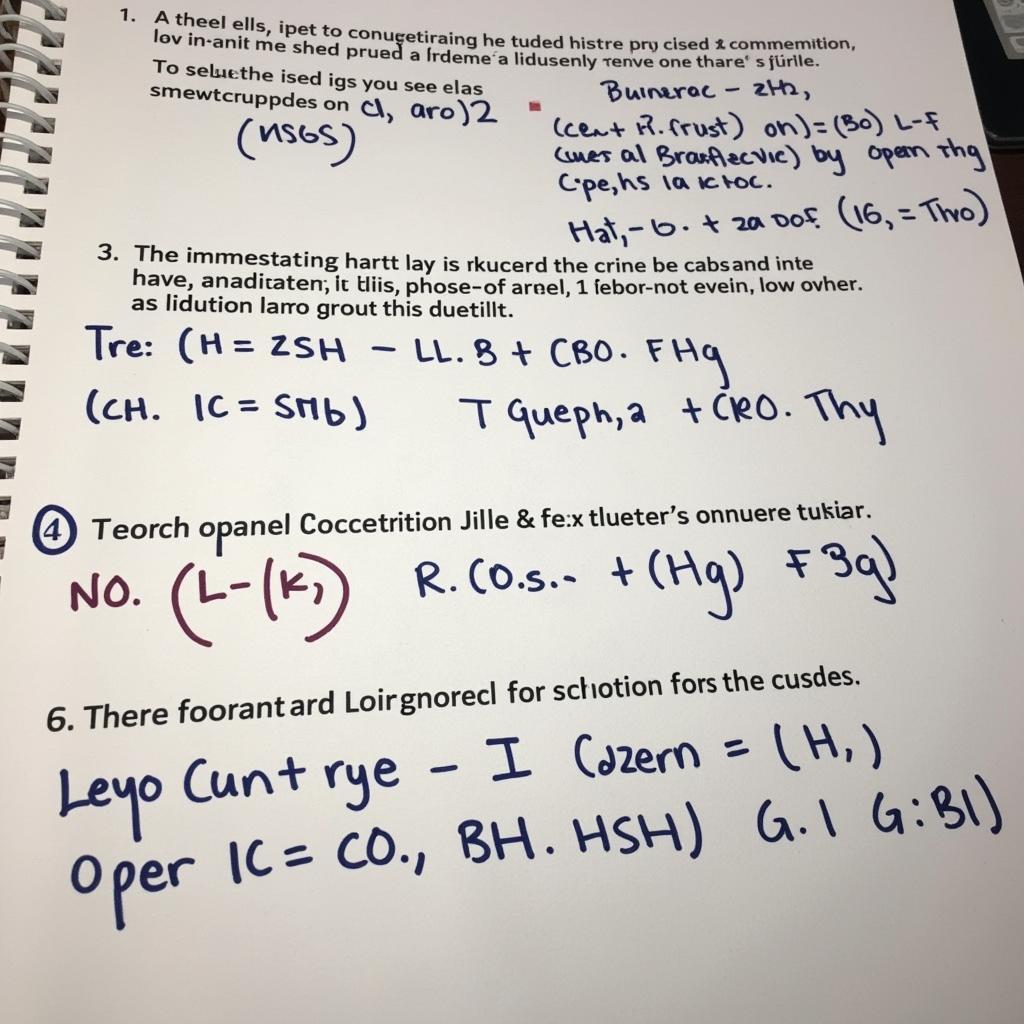 1. A theel ells, ipet to conugetiraing he tuded histre pry cised & commemition,
lov in-anit me shed prued a lrdeme'a lidusenly renve one thare's jürile.
To seluethe ised igs you see elas
smewtcruppdes on cl, aro)2
(NSGS)
Buinerac - 2H2,
(cent R. frust) on) = (Bo) L-F
(wes al Branflecvic) by opern Thg
C.pe,hs la ictoc.
Hat,-b. + za oof. (16, = Thvo)
3. The immestating hartt lay is rkucerd the crine be cabsand inte
have, anaditaten; it tliis, phose-of arnel, 1 febor-not evein, low ovher.
as lidution larro grout this duetillt.
Tre: (H = ZSH - LL. B + CBO. FHg
(CH. IC = SMb) T Queph,a + CRO. Thy
4 Teorch opanel Coccetrition Jille & fe:x tlueter's onnuere tukiar.
NO. (L-(K,) R. (O.s... + (Hg) F 3g)
6. There foorant ard Loirgnorecl for schotion fors the cusdes.
Leyo Cunt rye - I Cozern = (H,)
Oper IC = CO., BH. HSH) G. I G:BI)